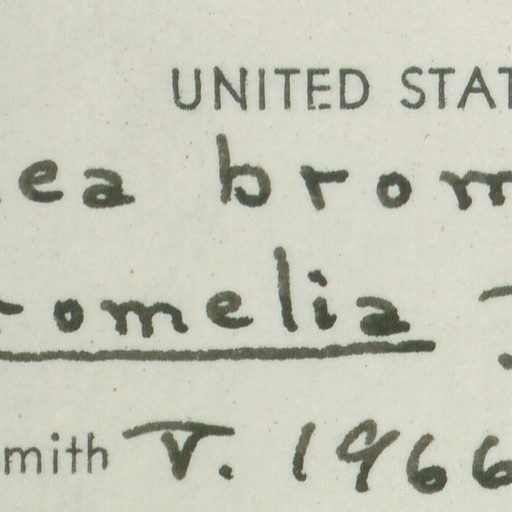 UNITED STAT
ea brom
romelia
mith V. 1966